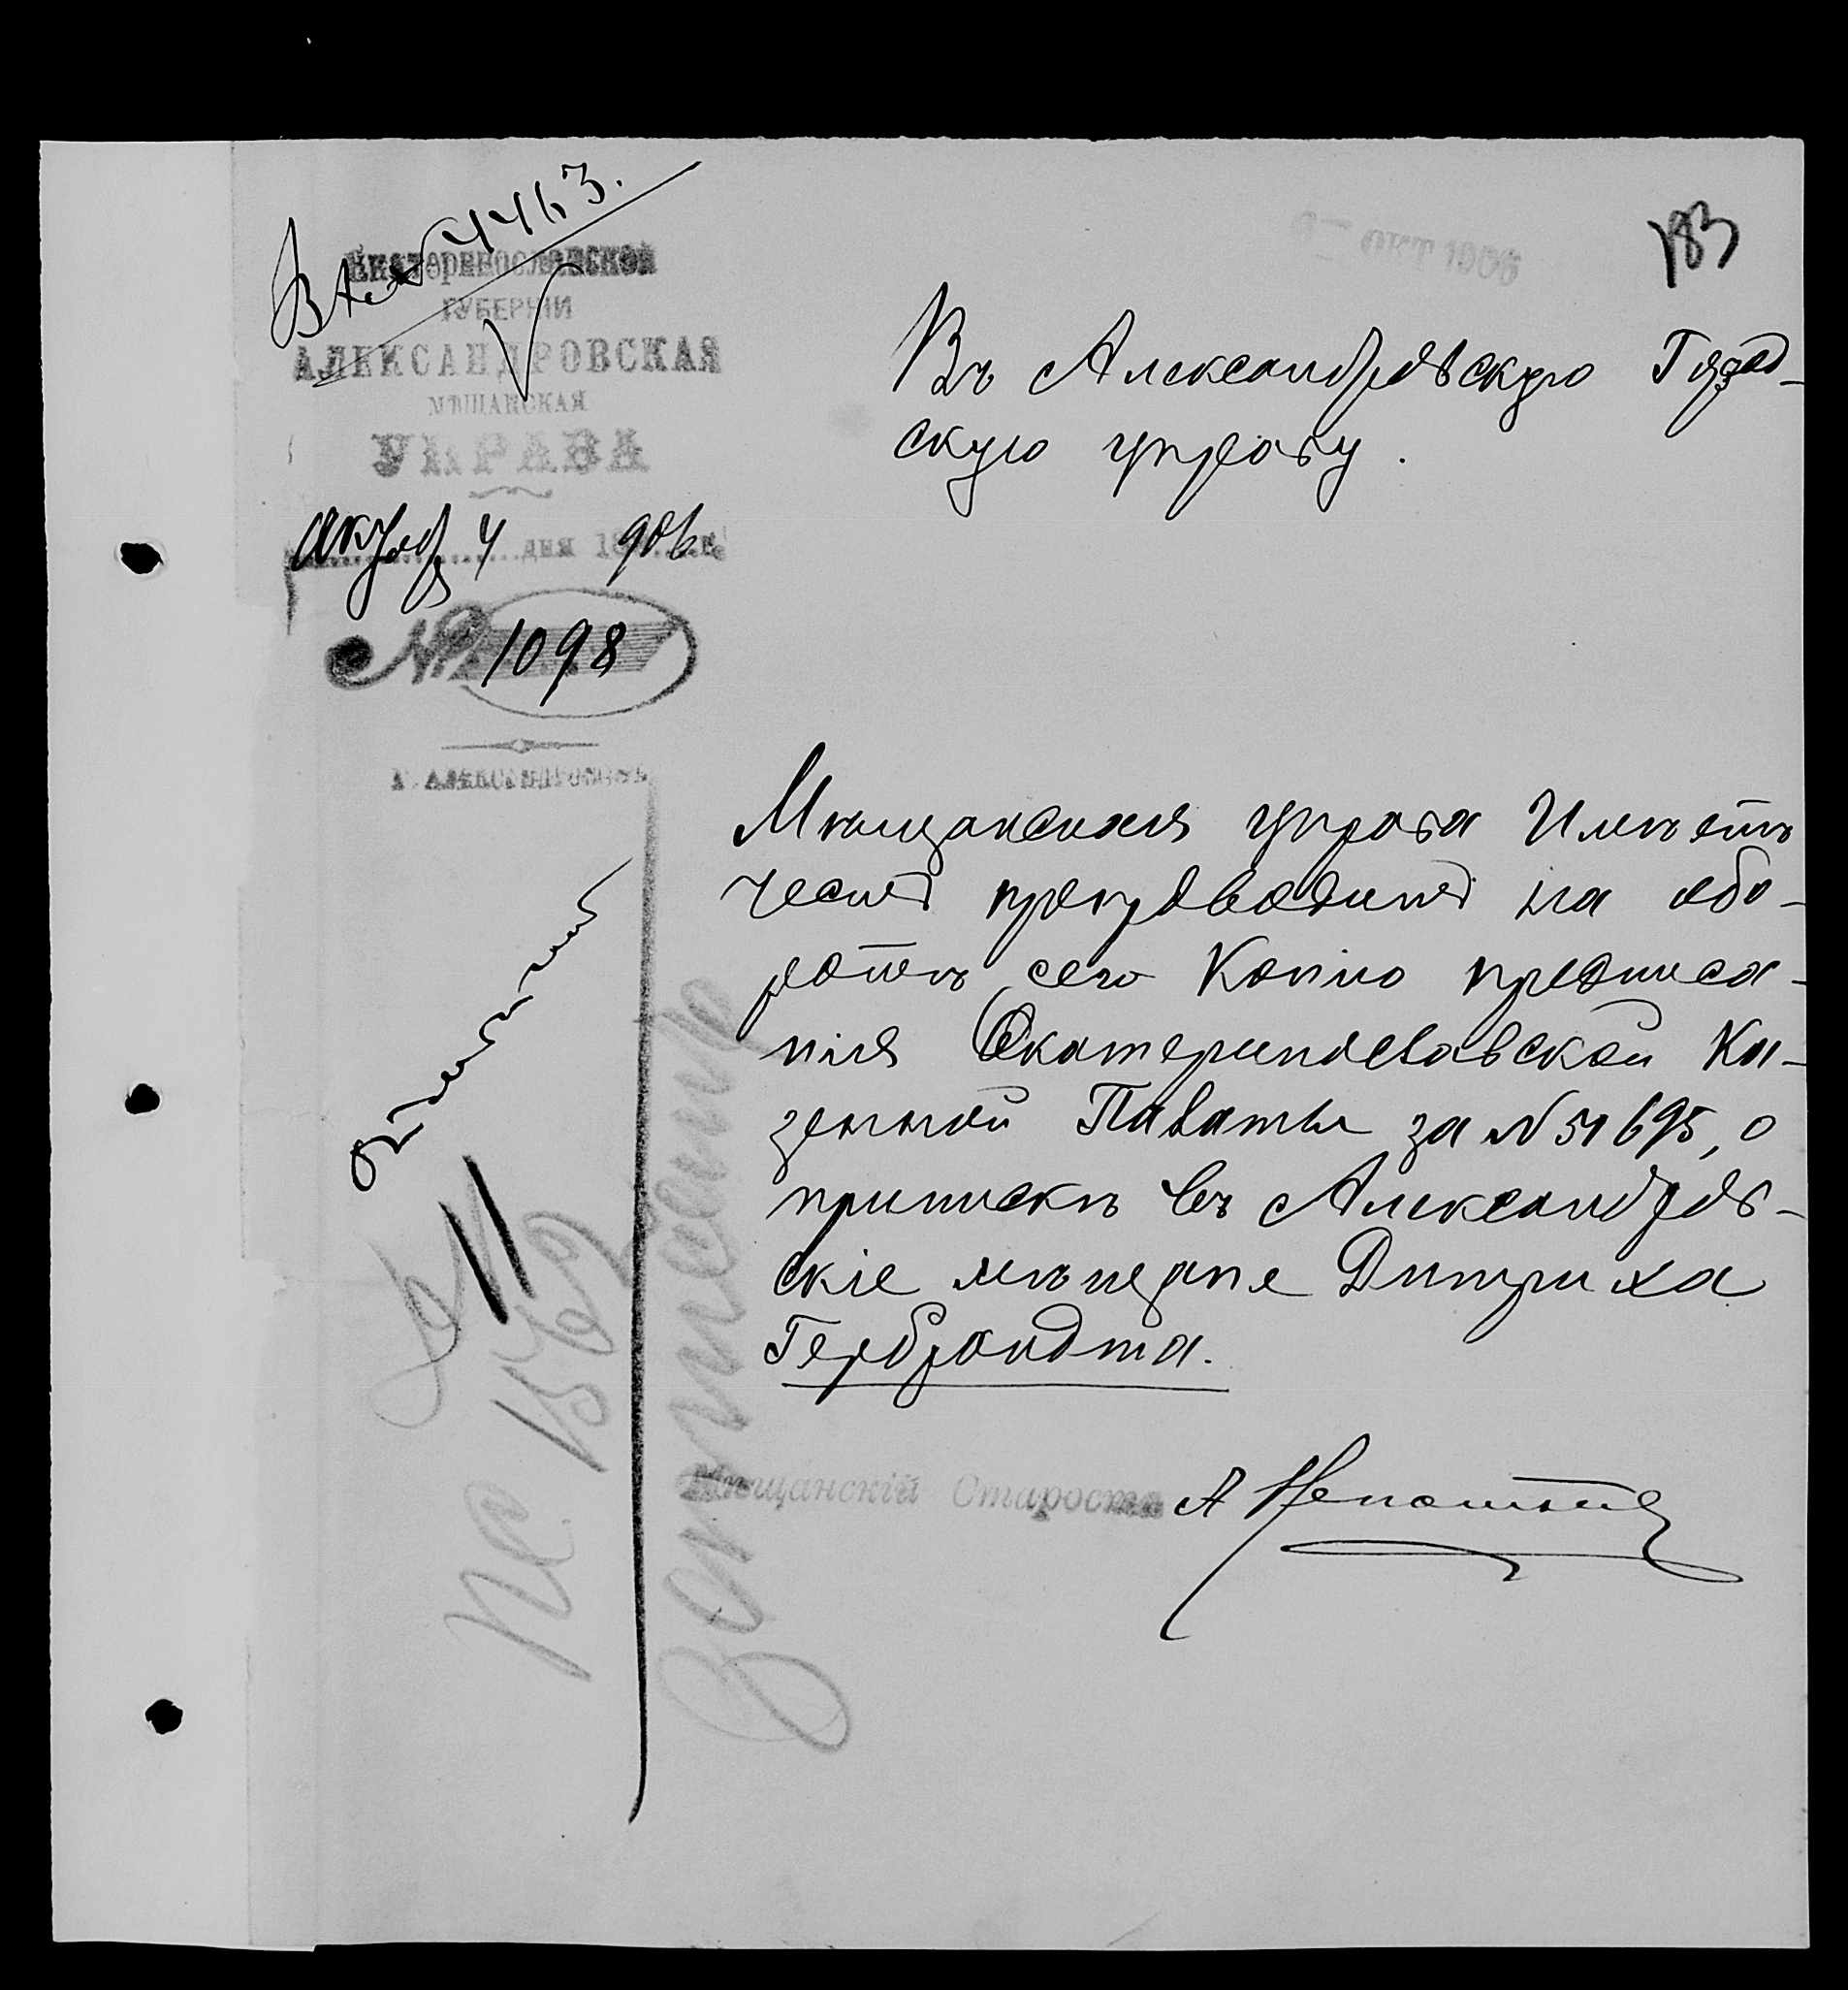 Вх № 4463.
183
ОКТ 1906
Екатеринославской
ГУБЕРНІИ
АЛЕКСАНДРОВСКАЯ
МѢЩАНСКАЯ
УПРАВА
Октяб 4 дня 1906 г.
№ 1098
Г. АЛЕКСАНДРОВСКЪ
Въ Александровскую Город-
скую управу.
Мѣщанская управа Имѣетъ
честь препроводить на обо-
ротѣ сего Копію предписа-
нія Екатеринославской Ка-
зенной Палаты за № 51695, о
припискѣ въ Александров-
скіе мѣщане Дитриха
Гербрандта.
Мѣщанскій Староста А